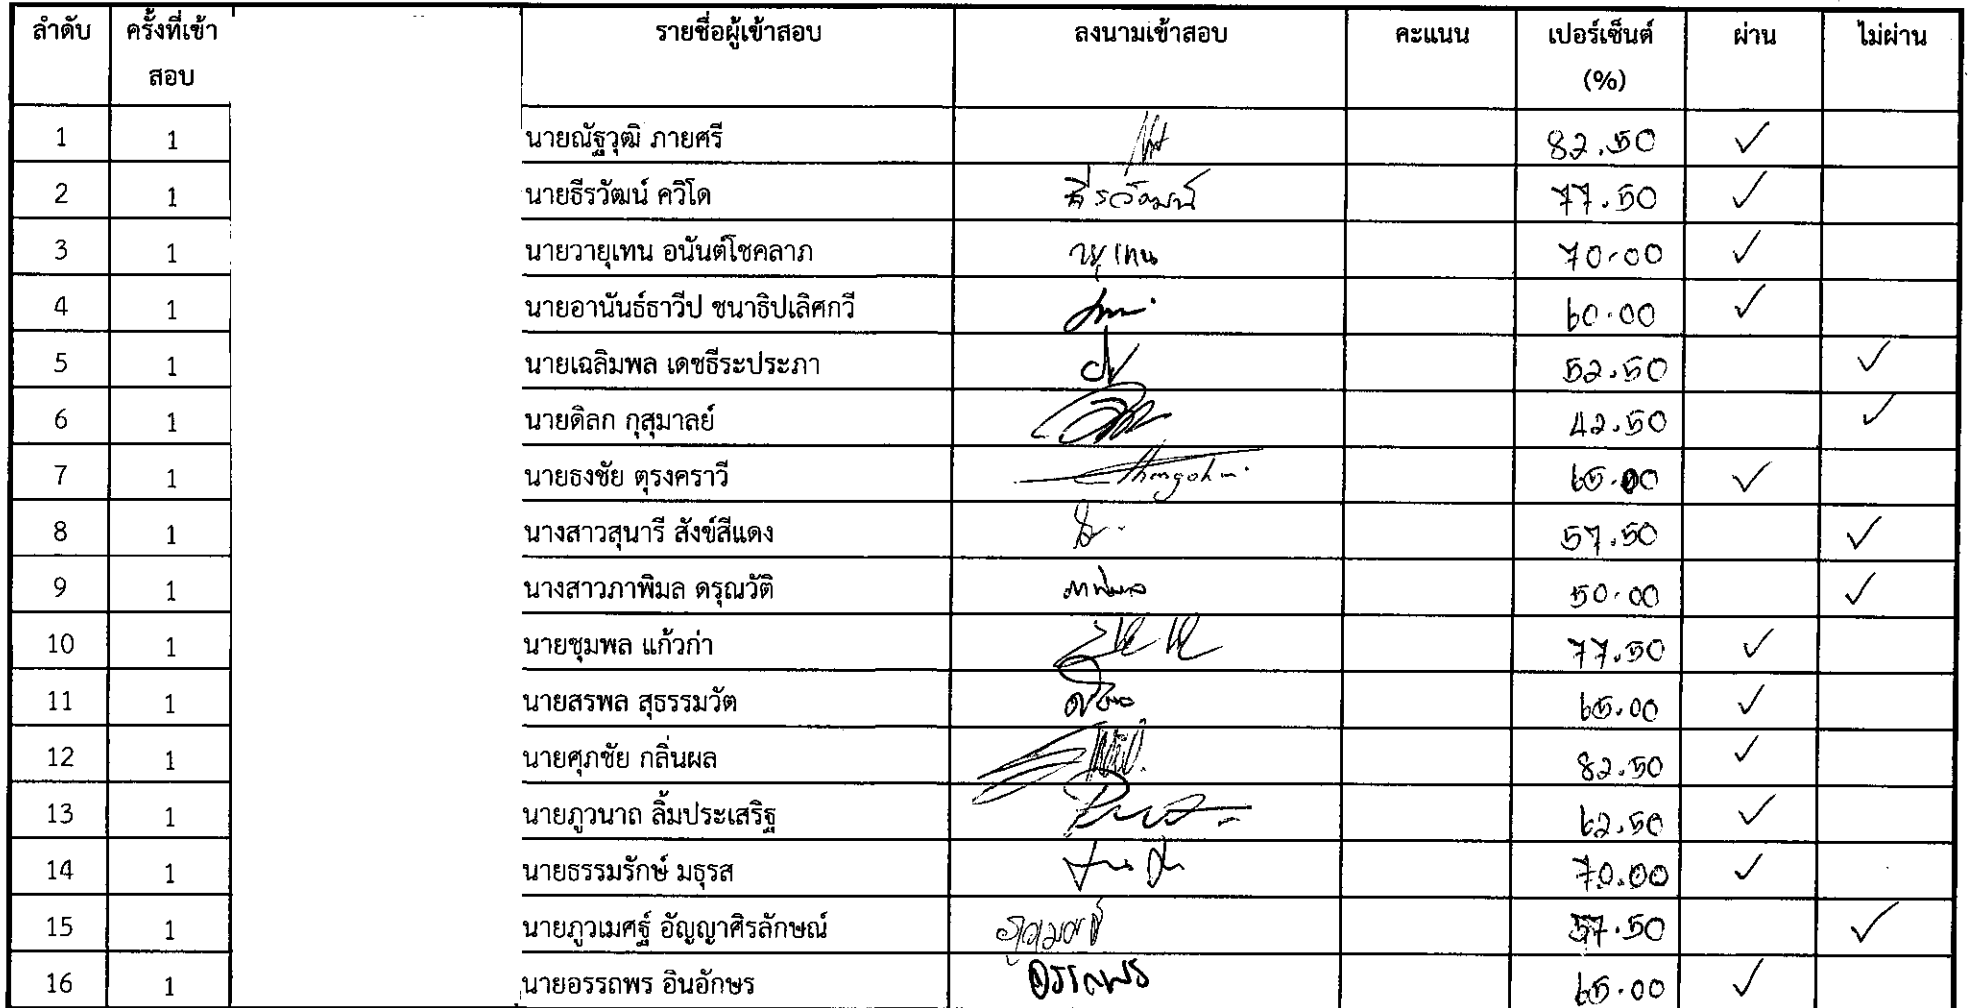 ลำดับ ครั้งที่เข้าสอบ รายชื่อผู้เข้าสอบ ลงนามเข้าสอบ คะแนน เปอร์เซ็นต์ (%) ผ่าน ไม่ผ่าน
1 1 นายณัฐวุฒิ ภายศรี 82.50 ✓
2 1 นายธีรวัฒน์ ควิโด ธีรวัฒน์ 77.50 ✓
3 1 นายวายุเทน อนันต์โชคลาภ 70.00 ✓
4 1 นายอานันธ์ธาวีป ชนาธิปเลิศกวี 60.00 ✓
5 1 นายเฉลิมพล เดชธีระประภา 52.50 ✓
6 1 นายดิลก กุสุมาลย์ 42.50 ✓
7 1 นายธงชัย ตุรงคราวี 65.00 ✓
8 1 นางสาวสุนารี สังข์สีแดง 57.50 ✓
9 1 นางสาวภาพิมล ดรุณวัติ ภาพิมล 50.00 ✓
10 1 นายชุมพล แก้วก่า 77.50 ✓
11 1 นายสรพล สุธรรมวัต 65.00 ✓
12 1 นายศุภชัย กลิ่นผล 82.50 ✓
13 1 นายภูวนาถ ลิ้มประเสริฐ 62.50 ✓
14 1 นายธรรมรักษ์ มธุรส 70.00 ✓
15 1 นายภูวเมศฐ์ อัญญาศิรลักษณ์ 57.50 ✓
16 1 นายอรรถพร อินอักษร อรรถพร 65.00 ✓